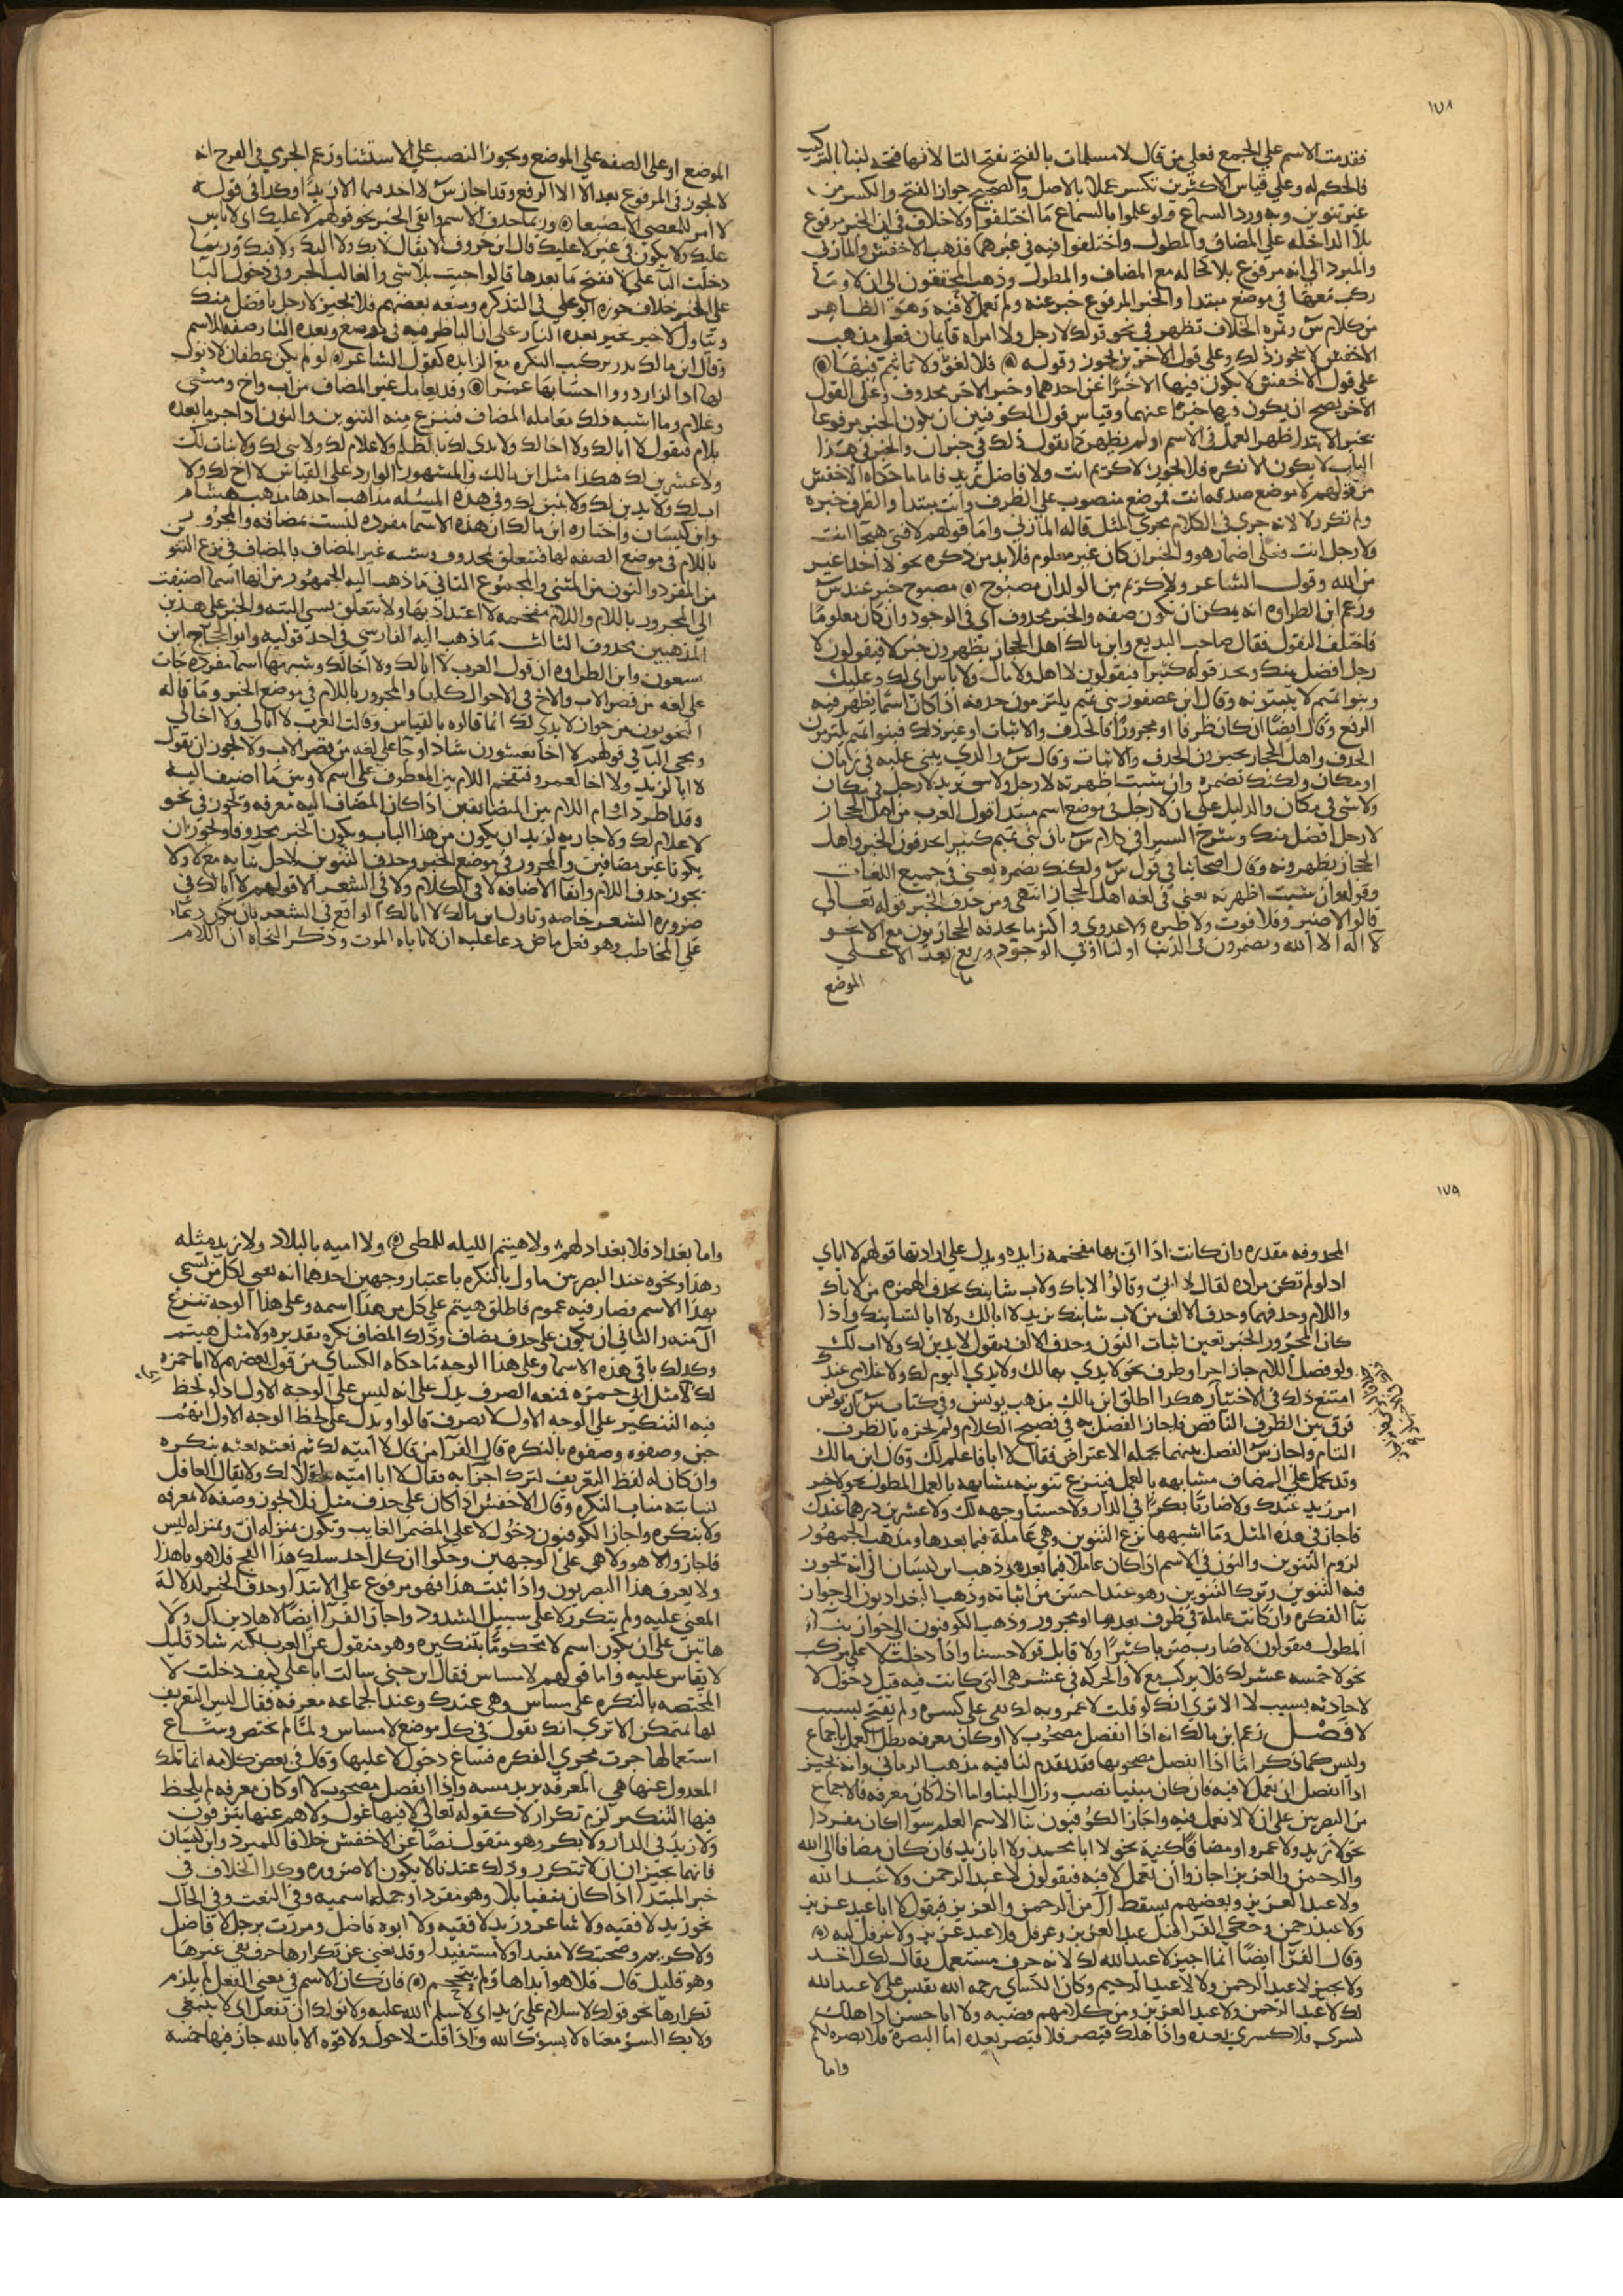 ١٧٨
فقدمت الاسم على الجمع فعلى من قال لا مسلمات بالفتح بفتح التا لانها فتحه لبنا بالتركيب
فالحكم له وعلى قياس الاكثرين تكسر عملا بالاصل والصحيح جواز الفتح والكسر من
غير تنوين وبه ورد السماع ولو علموا بالسماع ما اختلفوا ولا خلاف في ان الخبر مرفوع
بلا الداخله على المضاف والمطول واختلفوا فيه في غيرهما فذهب الاخفش والمازني
والمبرد الى انه مرفوع بلا كحاله مع المضاف والمطول وذهب المحققون الى ان لا وما
ركب معها في موضع مبتدا والخبر المرفوع خبر عنه ولم تعمل لا فيه وهو الظاهر
من كلام س وثمره الخلاف تظهر في نحو قولك لا رجل ولا امراه قايمان فعلى مذهب
الاخفش لا يجوز ذلك وعلى قول الاخرين يجوز وقوله فلا لغو ولا تاثيم فيها
على قول الاخفش لا يكون فيها الا خبرا عن احدهما وخبر الاخر محذوف وعلى القول
الاخر يصح ان يكون فيها خبرا عنهما وقياس قول الكوفيين ان يكون الخبر مرفوعا
بخبر الابتدا ظهر العمل في الاسم او لم يظهر كما يقول ذلك في خبر ان والخبر في هذا
الباب لا يكون الا نكره فلا يجوز لا كريم انت ولا فاضل زيد فاما ما حكاه الاخفش
من قولهم لا موضع صدقه انت فموضع منصوب على الظرف وانت مبتدا والظرف خبره
ولم تكرر لا لانه جرى في الكلام مجرى المثل قاله المازني واما قولهم لا فتى هيجا انت
ولا رجل انت فعلى اضمار هو والخبر ان كان غير معلوم فلا بد من ذكره نحو لا احد اغير
من الله وقول الشاعر ولا كريم من الولدان مصبوح مصبوح خبر عند س
وزعم ابن الطراوه انه يمكن ان يكون صفه والخبر محذوف اي في الوجود وان كان معلوما
فاختلف النقول فقال صاحب البديع وابن مالك اهل الحجاز يظهرون خبر لا فيقولون لا
رجل افضل منك ويحذفونه كثيرا فيقولون لا اهل ولا مال ولا باس اي لك وعليك
وبنو تميم لا يثبتونه وقال ابن عصفور بنو تميم يلتزمون حذفه اذا كان اسما يظهر فيه
الرفع وقال ايضا ان كان ظرفا او مجرورا فالحذف والاثبات او غير ذلك فبنو تميم يلتزمون
الحذف واهل الحجاز يجيزون الحذف والاثبات وقال س والذي يبنى عليه في زمان
او مكان ولكنك تضمره وان شيت اظهرته لا رجل ولا شي تريد لا رجل في مكان
ولا شي في مكان والدليل على ان لا رجل في موضع اسم مبتدا قول العرب من اهل الحجاز
لا رجل افضل منك وشرح السيرافي كلام س بان بني تميم كثيرا يحذفون الخبر واهل
الحجاز يظهرونه وقال اصحابنا في قول س ولكنك تضمره يعني في جميع اللغات
وقوله وان شيت اظهرته يعني في لغه اهل الحجاز انتهى ومن حذف الخبر قوله تعالى
قالوا لا ضير وفلا فوت ولا طيره ولا عدوى واكثر ما يحذفه الحجازيون مع الا نحو
لا اله الا الله ويضمرون في الدنيا او لنا او في الوجود ويرفع ما بعد الا على
الموضع
الموضع او على الصفه على الموضع ويجوز النصب على الاستثنا وزعم الجرمي في الفرخ انه
لا يجوز في المرفوع بعد الا الا الرفع وقد اجاز س لا احد فيها الا زيدا وكذا في قوله
لا امر للمعصي الا مضيعا وربما حذف الاسم وابقى الخبر نحو قولهم لا عليك اي لا باس
عليك ولا يكون في غير لا عليك قال ابن خروف لا يقال لا بك ولا اليك ولا فيك وربما
دخلت البا على لا فتجر ما بعدها قالوا جيت بلا شي والغالب الجر وفي دخول البا
على الخبر خلاف جوزه ابو علي في التذكره ومنعه بعضهم فلا يجيز لا رجل بافضل منك
وتناول لا خير بخير بعده النار على ان البا ظرفيه في موضع وبعده النار صفه للاسم
وقال ابن مالك ندر تركيب النكره مع الزايده كقول الشاعر لو لم يكن غطفان لا ذنوب
لها اذا لزار ذوو احسابها عمرا وقد يعامل غير المضاف من اب واخ ومثنى
وغلام وما اشبه ذلك معامله المضاف فينزع منه التنوين والنون اذا جر ما بعده
بلام فيقول لا ابا لك ولا اخا لك ولا يدي لك بالظلم ولا غلام لك ولا بني لك ولا بنات لك
ولا عشري لك هكذا مثل ابن مالك والمشهور الوارد على القياس لا اخ لك ولا
اب لك ولا يدين لك ولا بنين لك وفي هذه المسئله مذاهب احدها مذهب هشام
وابن كيسان واختاره ابن مالك ان هذه الاسما مفرده ليست بمضافه والمجرور
باللام في موضع الصفه لها فتتعلق بمحذوف وشبه غير المضاف بالمضاف في نزع التنوين
من المفرد والنون من المثنى والمجموع الثاني ما ذهب اليه الجمهور من انها اسما اضيفت
الى المجرور باللام واللام مقحمه لا اعتداد بها ولا تتعلق بشي البته والخبر على هذين
المذهبين محذوف الثالث ما ذهب اليه الفارسي في احد قوليه وابو الحجاج ابن
يسعون وابن الطراوه ان قول العرب لا ابا لك ولا اخا لك وشبهها اسما مفرده جات
على لغه من قصر الاب والاخ في الاحوال كلها والمجرور باللام في موضع الخبر وما قاله
النحويون من جواز لا يدي لك انما قالوه بالقياس وقالت العرب لا ابا لي ولا اخا لي
لا ابا لزيد ولا اخا لعمرو فتقحم اللام بين المعطوف على اسم لا وبين ما اضيف اليه
وقد اطرد اقحام اللام بين المتضايفين اذا كان المضاف اليه معرفه ويجوز في نحو
لا غلام لك ولا جاريه لزيد ان يكون من هذا الباب ويكون الخبر محذوفا ويجوز ان
يكونا غير مضافين والمجرور في موضع الخبر وحذف التنوين لاجل بنايه مع لا ولا
يجوز حذف اللام وابقا الاضافه لا في الكلام ولا في الشعر الا قولهم لا اباك في
ضروره الشعر خاصه وتاول ابن مالك لا اباك الواقع في الشعر بان يكون دعا
على المخاطب وهو فعل ماض دعا عليه ان لا ياباه الموت وذكر النحاه ان اللام
١٧٩
المحذوفه مقدره وان كانت اذا اتي بها مقحمه زايده ويدل على ارادتها قولهم لا اباي
اذ لو لم تكن مراده لقال لا ابي وقالوا لا اباك ولاب شانيك بحذف الهمزه من لا اباك
واللام وحذفهما وحذف الالف من لاب شانيك يريد لا ابا لك ولا ابا لشانيك واذا
كان المجرور الخبر تعين اثبات النون وحذف الالف فيقول لا يدين لك ولا اب لك
ولو فصل اللام جار اخر او ظرف نحو لا يدي بها لك ولا يدي اليوم لك ولا غلامي عندك
امتنع ذلك في الاختيار هكذا اطلق ابن مالك ومذهب يونس وفي كتاب س ان يونس
فرق بين الظرف الناقص فاجاز الفصل به في فصيح الكلام ولم يجزه بالظرف
التام واجاز س الفصل بينهما بجمله الاعتراض فقال لا ابا فاعلم لك وقال ابن مالك
وقد يحمل على المضاف مشابهه بالعمل فينزع تنوينه مشابهه بالعمل المطول نحو لا خير
من زيد عندك ولا ضاربا بكرا في الدار ولا حسنا وجهه لك ولا عشرين درهما عندك
فاجاز في هذه المثل وما اشبهها نزع التنوين وهي عاملة فيما بعدها ومذهب الجمهور
لزوم التنوين والنون في الاسم اذا كان عاملا فيما بعده وذهب ابن كيسان الى انه يجوز
فيه التنوين وترك التنوين وهو عنده احسن من اثباته وذهب البغداديون الى جواز
بنا النكره وان كانت عاملة في ظرف بعدها او مجرور وذهب الكوفيون الى جواز بنا
المطول فيقولون لا ضارب ضربا كثيرا ولا قايل قولا حسنا واذا دخلت لا على مركب
نحو لا خمسه عشر لك فلا يركب مع لا والحركه في عشر هي التي كانت فيه قبل دخول لا
لا حادثه بسبب لا الا ترى انك لو قلت لا عمرويه لك بقي على كسره ولم يفتح بسبب
لا فصل زعم ابن مالك انه اذا انفصل مصحوب لا او كان معرفه بطل العمل باجماع
وليس كما ذكر اما اذا انفصل مصحوبها فقد تقدم لنا فيه مذهب الرماني وانه يجيز
اذا انفصل ان تعمل لا فيه فان كان مبنيا نصب وزال البنا واما اذا كان معرفه فالاجماع
من البصريين على ان لا لا تعمل فيه واجاز الكوفيون بنا الاسم العلم سوا اكان مفردا
نحو لا زيد ولا عمرو او مضافا كنيه نحو لا ابا محمد ولا ابا زيد فان كان مضافا الى الله
والرحمن والعزيز اجازوا ان تعمل لا فيه فيقولون لا عبد الرحمن ولا عبد الله
ولا عبد العزيز وبعضهم يسقط ال من الرحمن والعزيز فيقول لا ابا عبد عزيز
وقال الفرا ايضا انما اجيز لا عبد الله لك لانه حرف مستعمل يقال لكل احد
ولا يجيز لا عبد الرحمن ولا لا عبد الرحيم وكان الكساي رحمه الله يقيس على لا عبد الله
لك لا عبد الرحمن ولا عبد العزيز ومن كلامهم قضيه ولا ابا حسن اذا هلك
كسرى فلا كسرى بعده واذا هلك قيصر فلا قيصر بعده اما البصره فلا بصره لكم
واما
واما بغداد فلا بغداد لهم ولا هيثم الليله للمطي ولا اميه بالبلاد ولا زيد مثله
وهذا ونحوه عند البصريين ماول بالنكره باعتبار وجهين احدهما انه نعي لكل من تسمى
بهذا الاسم فصار فيه عموم فاطلق هيثم على كل من هذا اسمه وعلى هذا الوجه تنزع
ال منه والثاني ان يكون على حذف مضاف وذلك المضاف نكره تقديره ولا مثل هيثم
وكذلك باقي هذه الاسما وعلى هذا الوجه ما حكاه الكساي من قول بعضهم لا ابا حمزه
لك لا مثل ابي حمزه فمنعه الصرف يدل على انه ليس على الوجه الاول اذ لو لحظ
فيه التنكير على الوجه الاول لانصرف قالوا ويدل على لحظ الوجه الاول انهم
حين وصفوه وصفوه بالنكره قال الفرا من قال لا اميه لك ثم نعته نعته بنكره
لنيابته مناب النكره وقال الاخفش اذا كان على حذف مثل فلا يجوز وصفه لا بمعرفه
ولا بنكره واجاز الكوفيون دخول لا على المضمر الغايب وتكون بمنزله ان وبمنزله ليس
فاجازوا لا هو ولا هي على الوجهين وحكوا ان كل احد سلك هذا الفج فلا هو يا هذا
ولا يعرف هذا البصريون واذا ثبت هذا فهو مرفوع على الابتدا وحذف الخبر لدلالة
المعنى عليه ولم يتكرر لا على سبيل الشذوذ واجاز الفرا ايضا لا هاذين لك ولا
هاتين على ان يكون اسم لا محكوما بتنكيره وهو منقول عن العرب لكنه شاذ قليل
لا يقاس عليه واما قولهم لا مساس فقال ابن جني سالت ابا علي كيف دخلت لا
المختصه بالنكره على مساس وهي عندك وعند الجماعه معرفه فقال ليس التعريف
لها بمتمكن الا ترى انك تقول في كل موضع لا مساس ولما لم تختص وشاع
استعمالها جرت مجرى النكره فساغ دخول لا عليها وقال في بعض كلامه انما تلك
المعدول عنها هي المعرفه يريد مسه واذا انفصل مصحوب لا او كان معرفه لم يلحظ
فيها التنكير لزم تكرار لا كقوله تعالى لا فيها غول ولا هم عنها ينزفون
ولا زيد في الدار ولا بكر وهو منقول نصا عن الاخفش خلافا للمبرد وابن كيسان
فانهما يجيزان ان لا تتكرر وذلك عندنا لا يكون الا ضروره وكذا الخلاف في
خبر المبتدا اذا كان منفيا بلا وهو مفرد او جمله اسميه وفي النعت وفي الحال
نحو زيد لا فقيه ولا شاعر وزيد لا فقيه ولا ابوه فاضل ومررت برجل لا فاضل
ولا كريم وصحبتك لا مفيدا ولا مستفيدا وقد يغني عن تكرارها حرف نفي غيرها
وهو قليل قال فلا هو ابداها ولم يتجمجم فان كان الاسم في معنى الفعل لم يلزم
تكرارها نحو قولك لا سلام على زيد اي لا سلم الله عليه ولا نولك ان تفعل اي لا ينبغي
ولا بك السو معناه لا يسؤك الله واذا قلت لا حول ولا قوه الا بالله جاز فيها خمسه